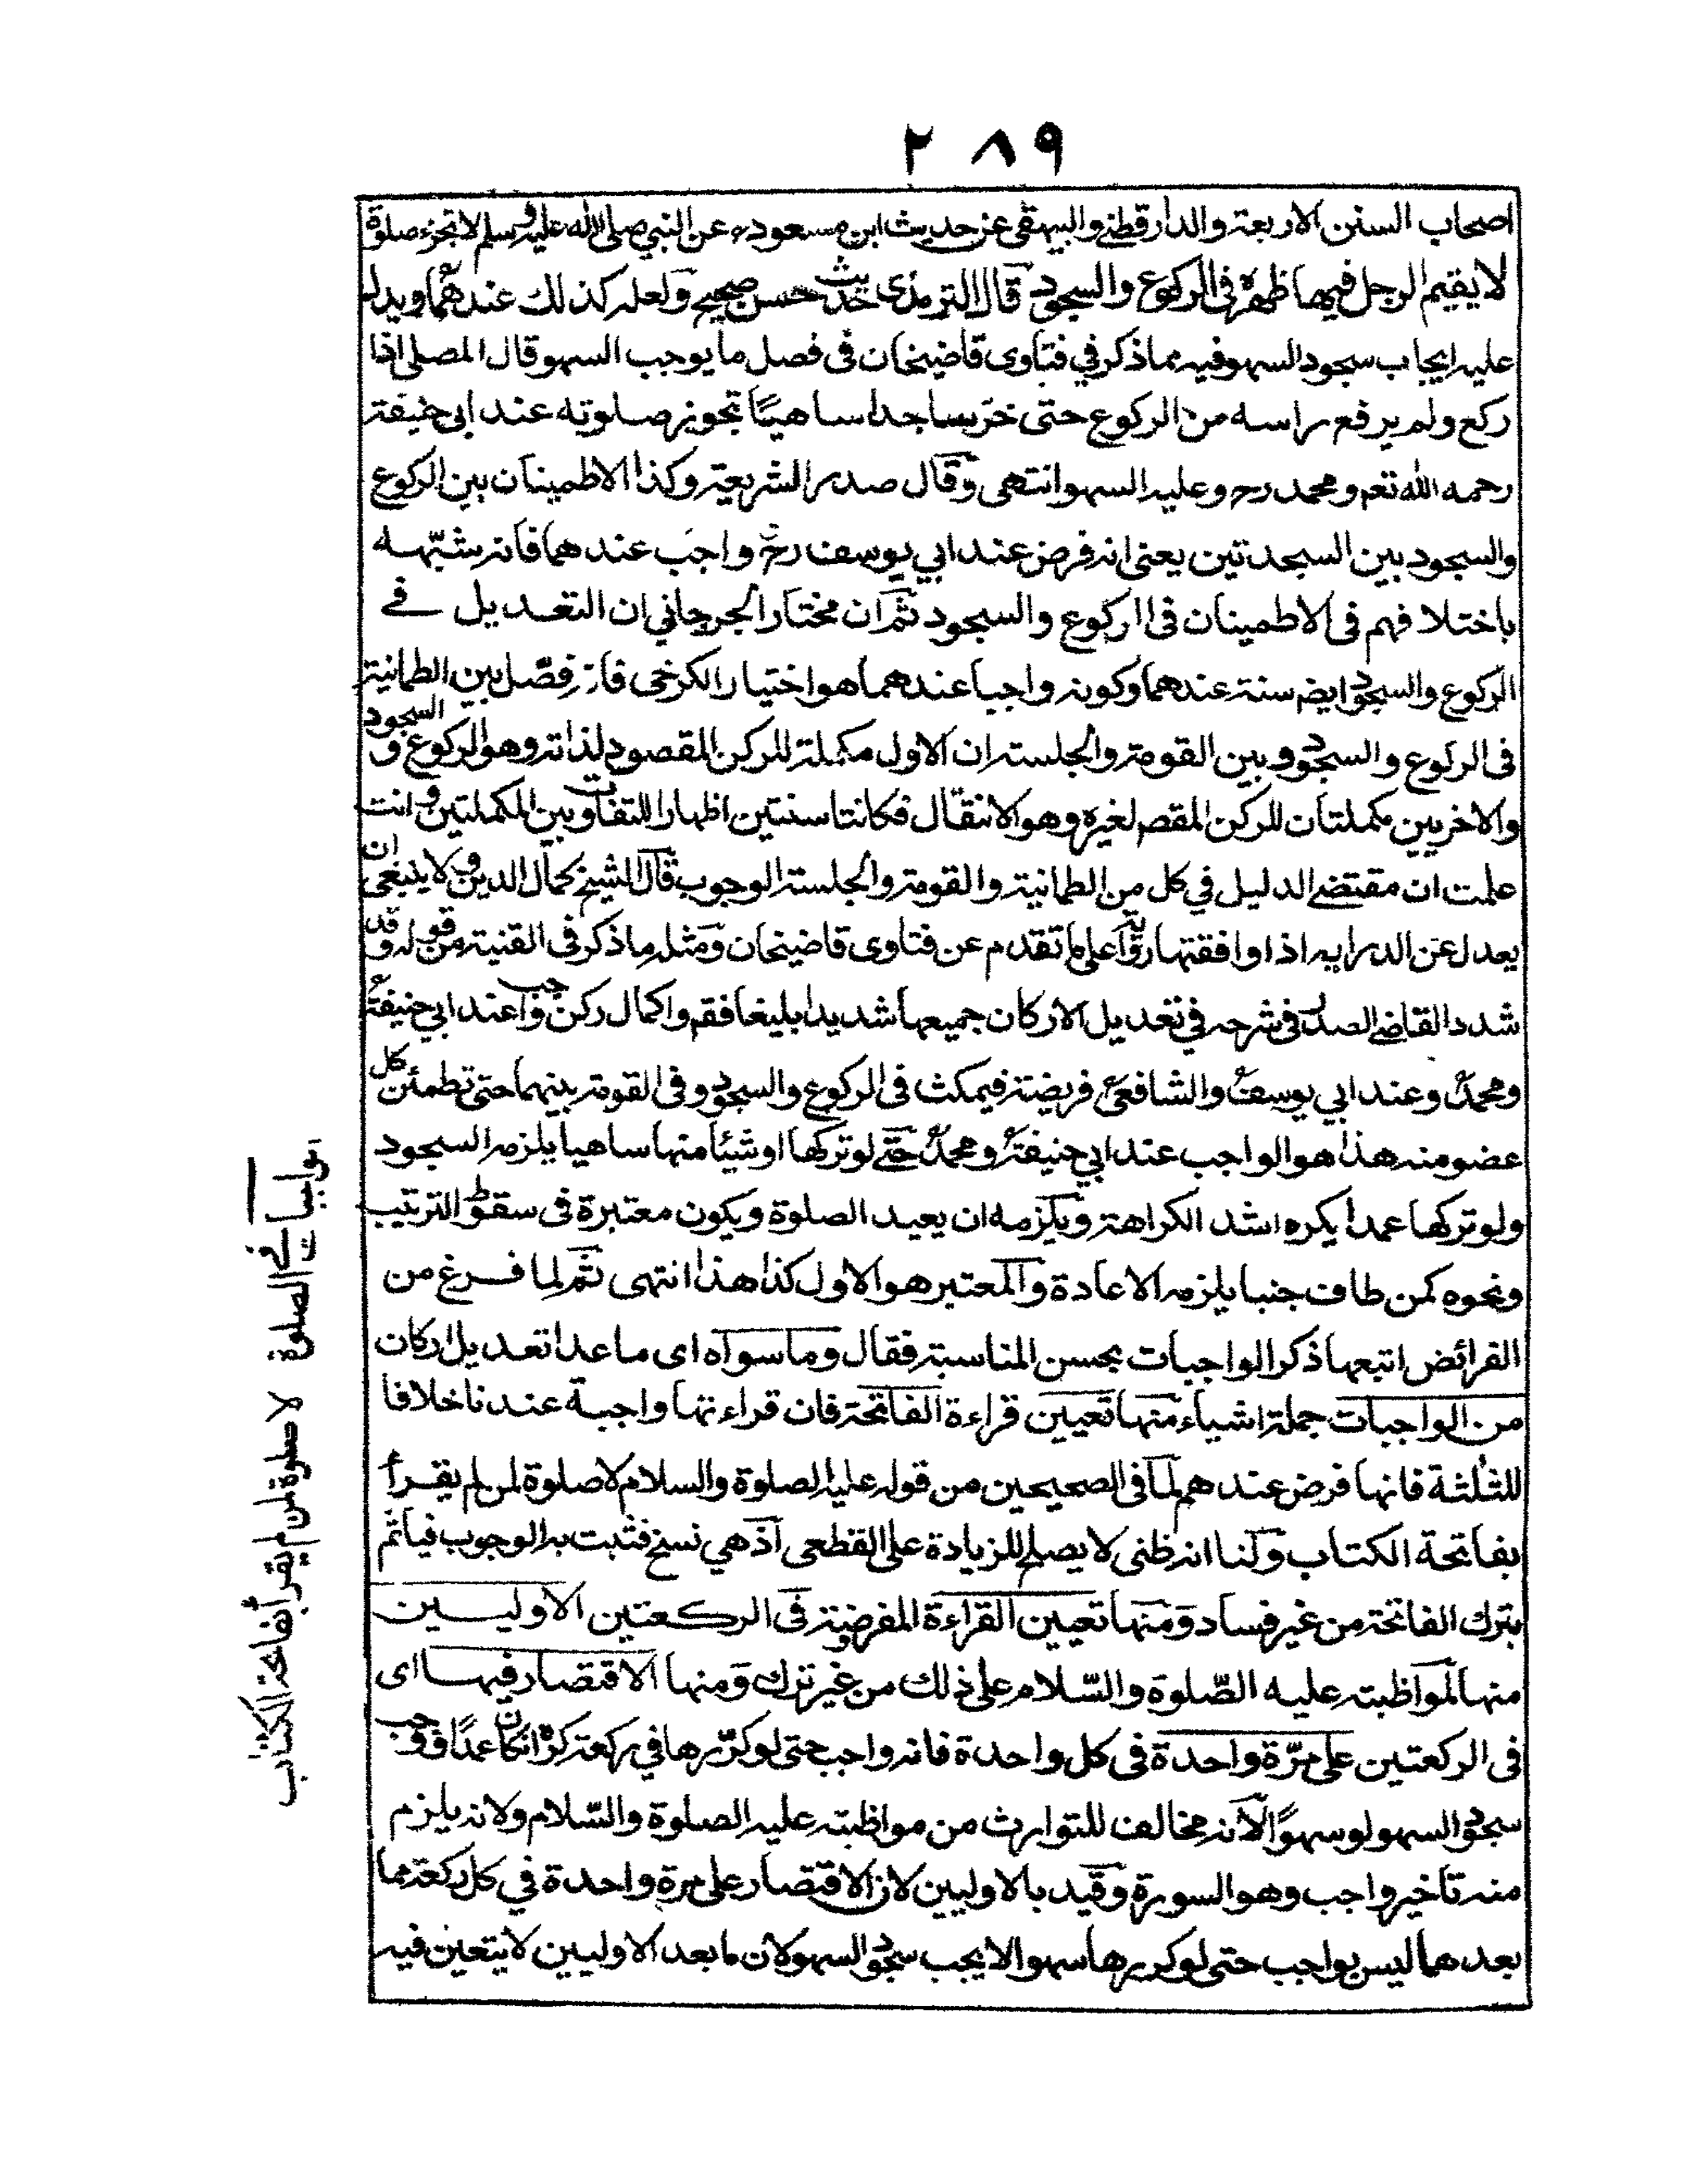 ٢٨٩
اصحاب السنن الاربعة والدارقطني والبيهقي عن حديث ابن مسعود رض عن النبي صلى الله عليه وسلم لا تجزء صلوة
لا يقيم الرجل فيها ظهره في الركوع والسجود قال الترمذي حديث حسن صحيح ولعله كذلك عندهما ويدل
عليه ايجاب سجود السهو فيه مما ذكر في فتاوى قاضيخان في فصل ما يوجب السهو قال المصلي اذا
ركع ولم يرفع راسه من الركوع حتى خر ساجدا ساهيا تجوز صلوته عند ابي حنيفة
رحمه الله تعم ومحمد رح وعليه السهو انتهى وقال صدر الشريعة وكذا الاطمينان بين الركوع
والسجود بين السجدتين يعني انه فرض عند ابي يوسف رح واجب عندهما فانه شبّهه
باختلافهم في الاطمينان في الركوع والسجود ثم ان مختار الجرجاني ان التعديل في
الركوع والسجود ايضم سنة عندهما وكونه واجبا عندهما هو اختيار الكرخي فانه فصّل بين الطمانية
في الركوع والسجود وبين القومة والجلسة ان الاول مكملة للركن المقصود لذاته وهو الركوع و السجود
والاخريين مكملتان للركن المقصم لغيره وهو الانتقال فكانتا سنتين اظهارا للتفاوت بين المكملتين وانت
علمت ان مقتضى الدليل في كل من الطمانية والقومة والجلسة الوجوب قال الشيخ كمال الدين ولا ينبغي ان
يعدل عن الدراية اذا وافقتها رواية على ما تقدم عن فتاوى قاضيخان ومثله ما ذكر في القنية من قوله وقد
شدد القاضي الصدر في شرحه في تعديل الاركان جميعها شديدا بليغا فقم واكمال ركن واجب عند ابي حنيفة رح
ومحمد رح وعند ابي يوسف رح والشافعي رح فريضة فيمكث في الركوع والسجود وفي القومة بينهما حتى تطمئن كل
عضو منه هذا هو الواجب عند ابي حنيفة رح ومحمد رح حتى لو تركها او شيئا منها ساهيا يلزمه السجود
ولو تركها عمدا يكره اشد الكراهة ويلزمه ان يعيد الصلوة ويكون معتبرة في سقوط الترتيب
ونحوه كمن طاف جنبا يلزمه الاعادة والمعتبر هو الاول كذا هذا انتهى ثم لما فرغ من
الفرائض اتبعها ذكر الواجبات بحسن المناسبة فقال وما سواه اى ما عدا تعديل اركان
من الواجبات جملة اشياء منها تعيين قراءة الفاتحة فان قراءتها واجبة عندنا خلافا
للثلثة فانها فرض عندهم لما في الصحيحين من قوله عليه الصلوة والسلام لا صلوة لمن لم يقرأ
بفاتحة الكتاب ولنا انه ظني لا يصلح للزيادة على القطعي اذ هي نسخ فثبت به الوجوب فياثم
بترك الفاتحة من غير فساد ومنها تعيين القراءة المفروضة في الركعتين الاوليـين
منها لمواظبته عليه الصّلوة والسّلام على ذلك من غير ترك ومنها الاقتصار فيها اى
في الركعتين على مرّة واحدة في كل واحدة فانه واجب حتى لو كرّرها في ركعة كره ان كان عمدا ووجب
سجود السهو لو سهوًا لانه مخالف للتوارث من مواظبته عليه الصلوة والسّلام ولانه يلزم
منه تاخير واجب وهو السورة وقيد بالاوليين لان الاقتصار على مرة واحدة في كل ركعة مما
بعدهما ليس بواجب حتى لو كررها سهوا لا يجب سجود السهو لان ما بعد الاوليين لا يتعين فيه
واجبات في الصلوة لا صلوة لمن لم يقرأ بفاتحة الكتاب